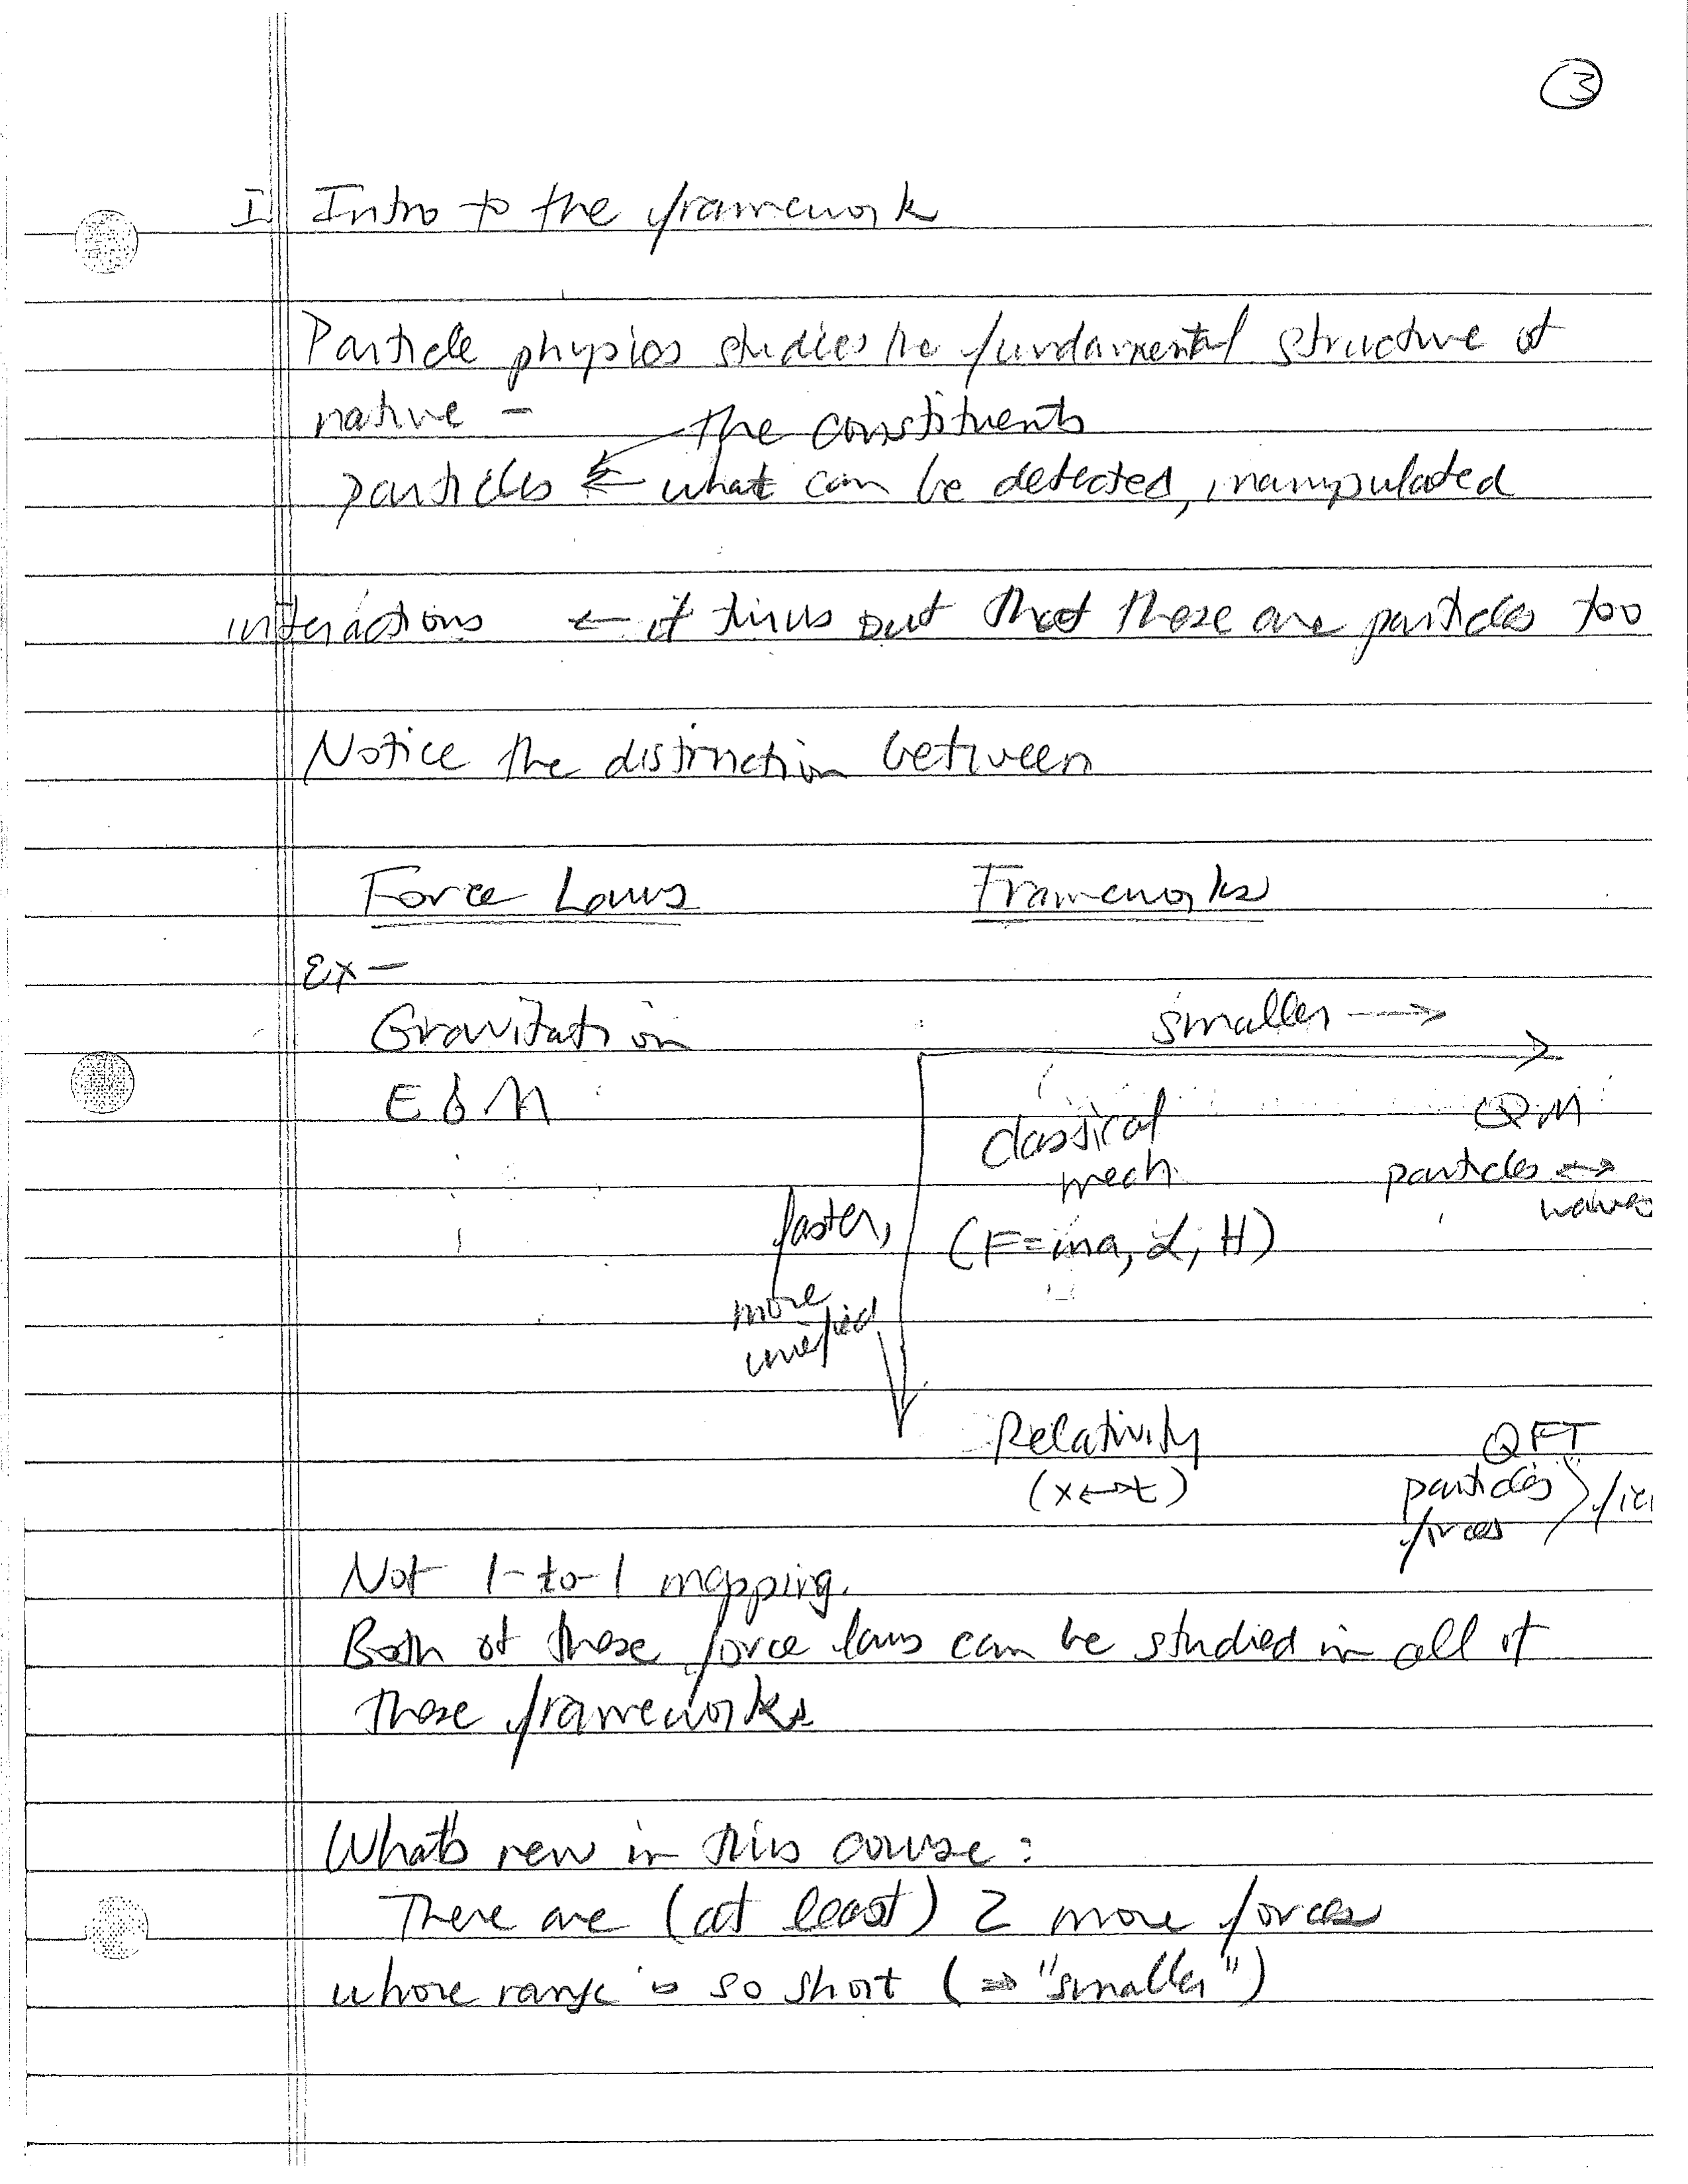 3
I Intro to the framework
Particle physics studies the fundamental structure of
nature –
the constituents
particles ← what can be detected, manipulated
interactions ← it turns out that these are particles too
Notice the distinction between
Force Laws Frameworks
Ex –
Gravitation
smaller →
E & M
Classical QM
mech. particles ↔
faster, waves
(F=ma, L, H)
more
unified
Relativity QFT
(x↔t) particles
forces
Not 1-to-1 mapping.
Both of these force laws can be studied in all of
these frameworks
What's new in this course:
There are (at least) 2 more forces
whose range is so short (⇒ "smaller")